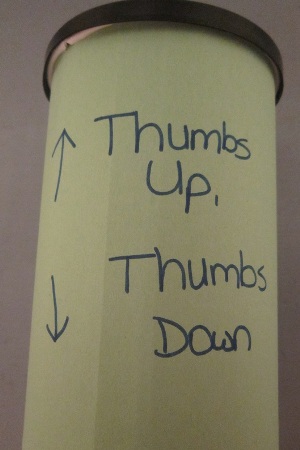 ↑ Thumbs
Up,
↓ Thumbs
Down